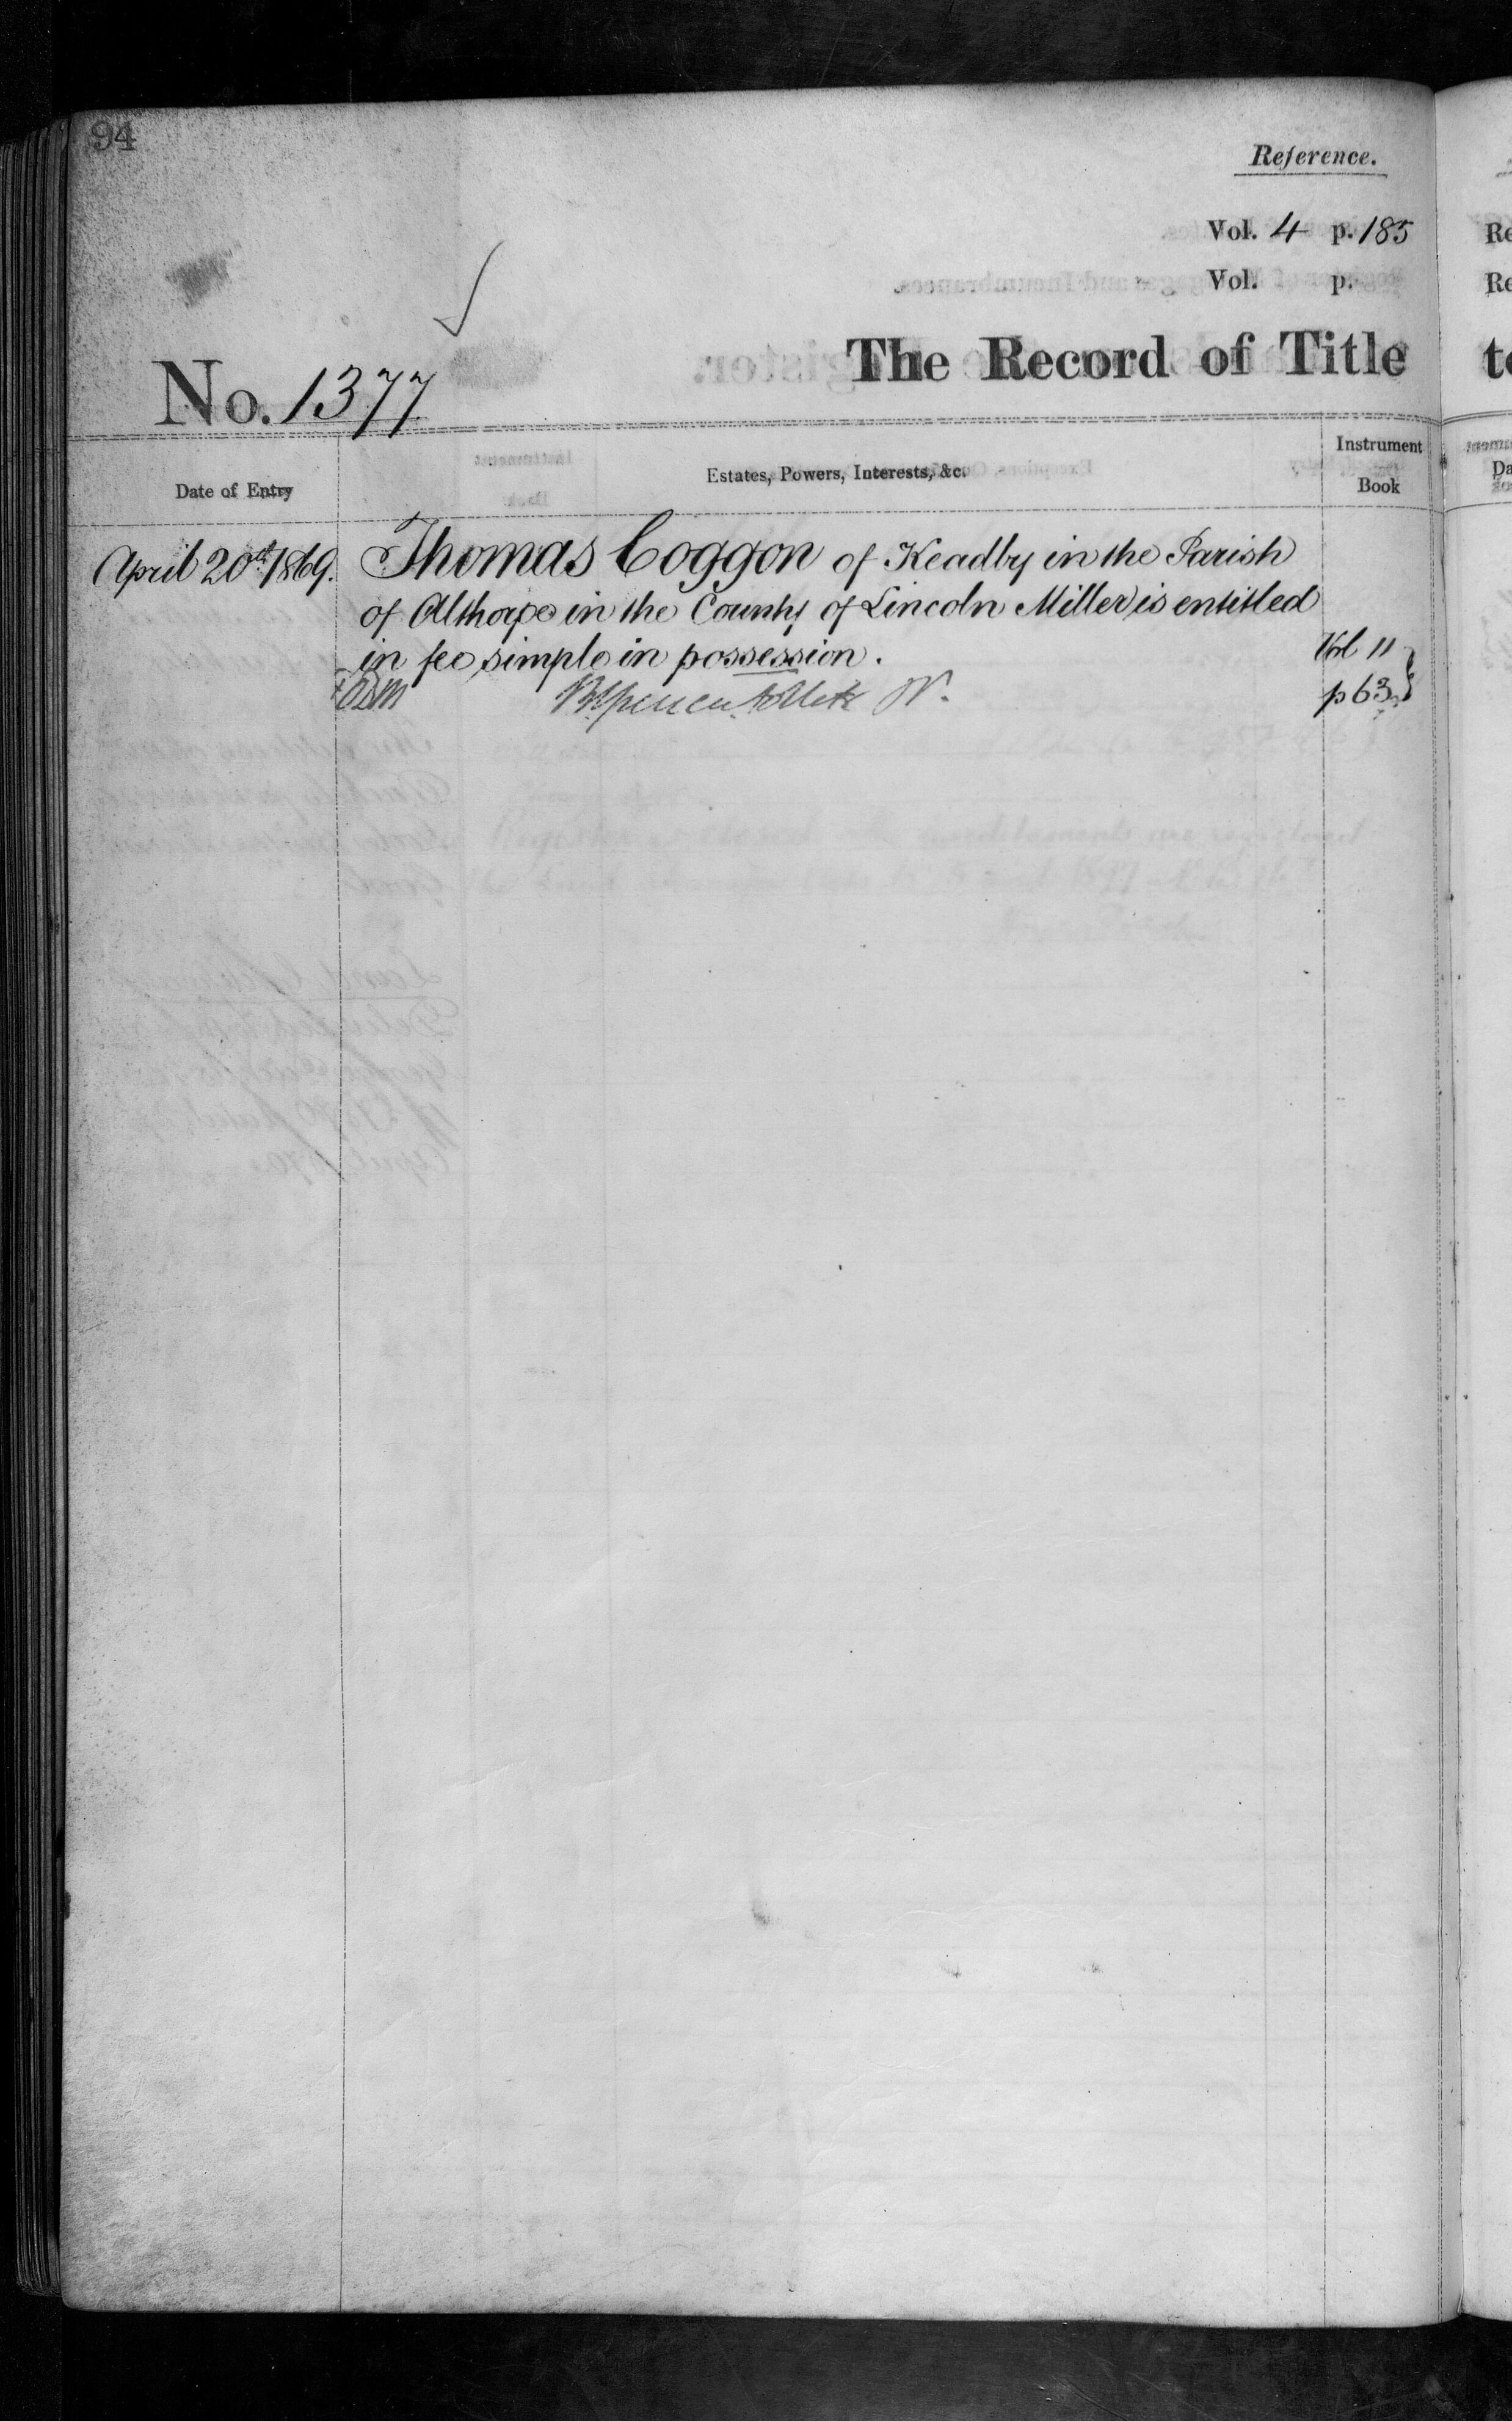 94
Reference.
Vol. 4 p. 185
Vol. p.
No. 1377
The Record of Title
Date of Entry
Estates, Powers, Interests, &c.
Instrument
Book
April 20th 1869.
Thomas Coggon of Keadby in the Parish
of Althorpe in the County of Lincoln Miller is entitled
in fee simple in possession.
Vol 11
p 63